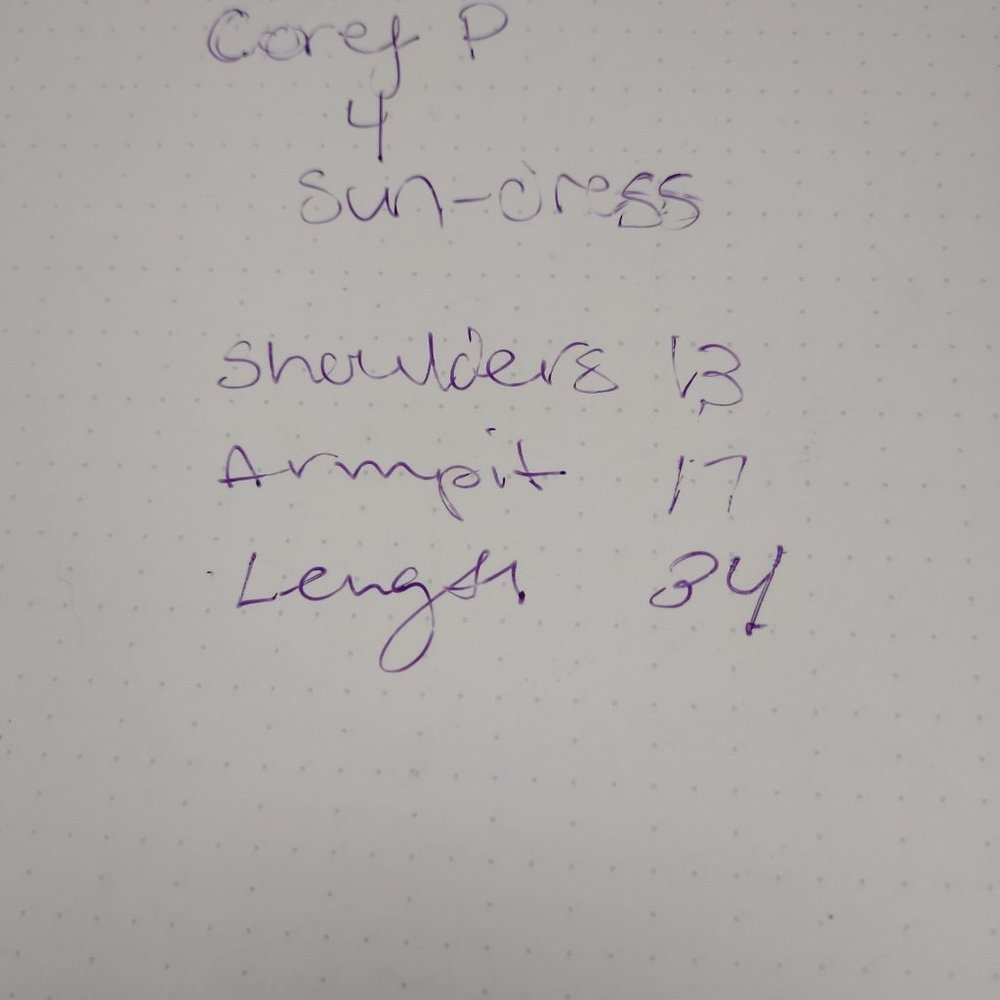 Corey P
4
Sun-dress
Shoulders 13
Armpit 17
Length 34